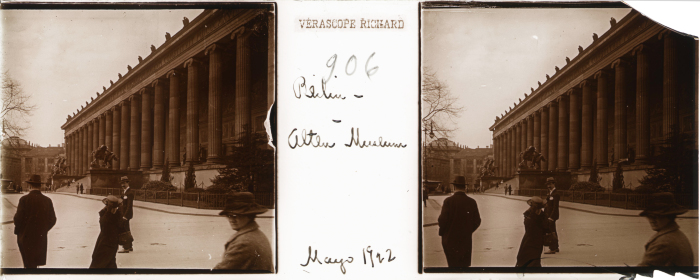 VÉRASCOPE RICHARD
906
Berlin -
-
Alten Museum
Mayo 1922